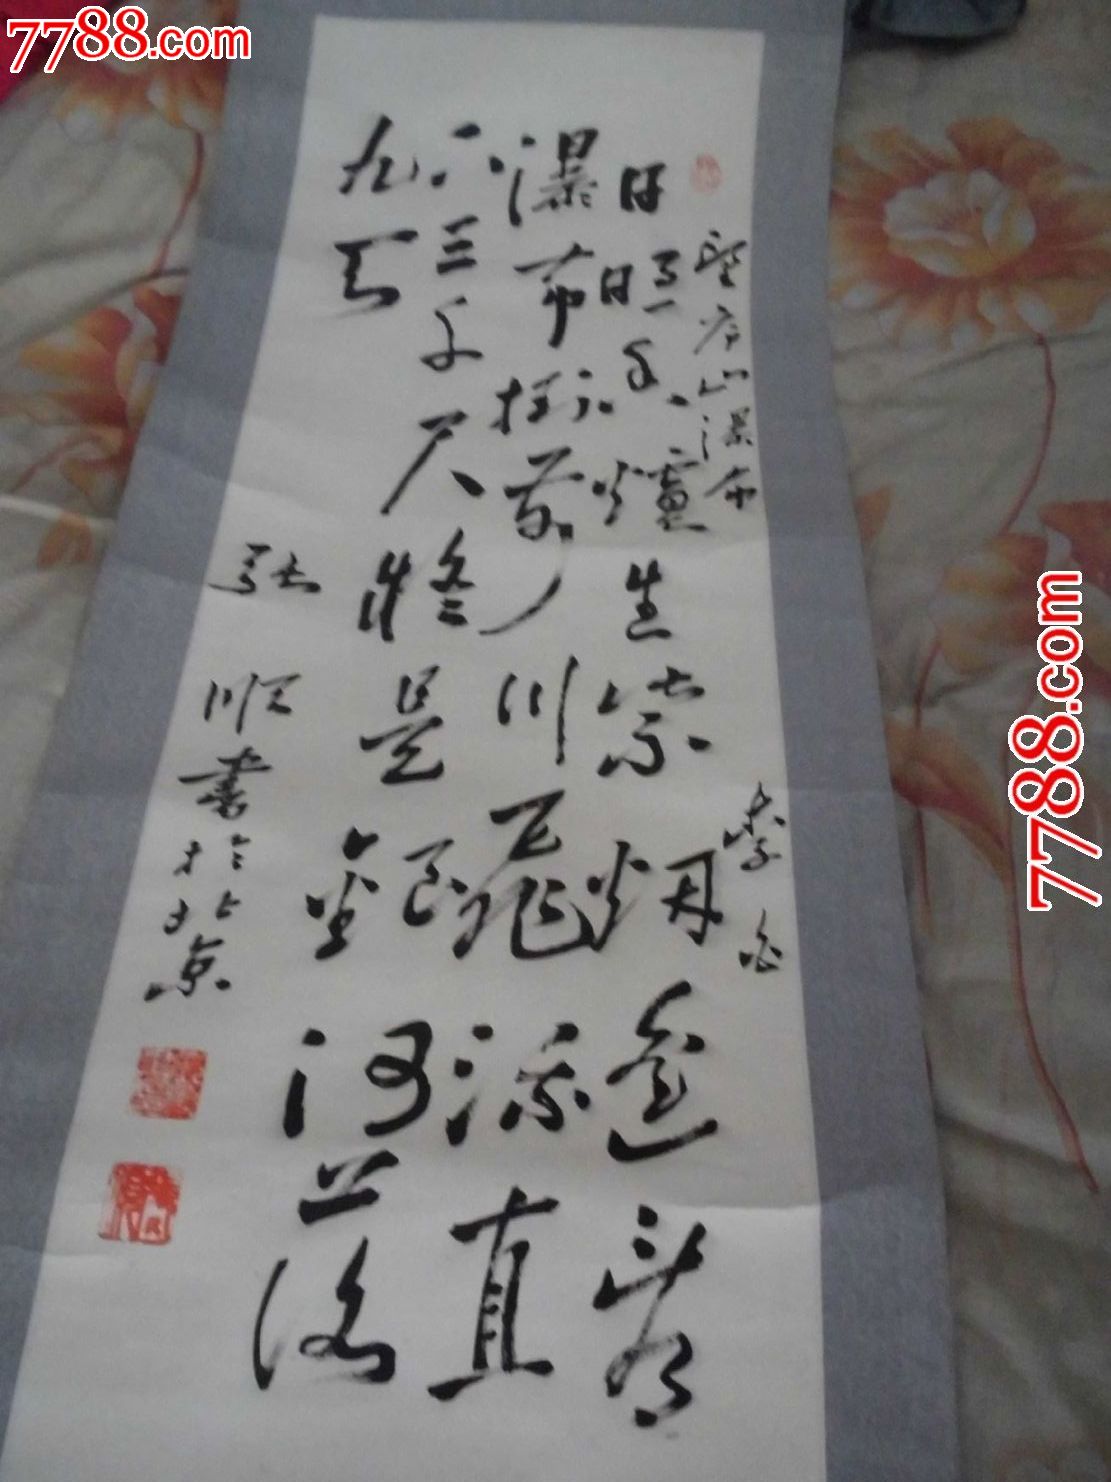 7788.com
望庐山瀑布 李白
日照香爐生紫烟遥看
瀑布挂前川飛流直
下三千尺將是銀河落
九天
张顺書於北京
7788.com